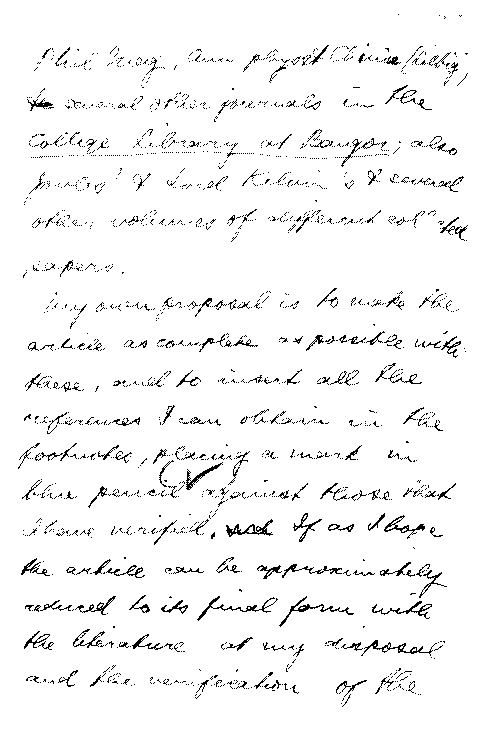 Phil Mag, Ann phys et Chimie (Liebig),
several other journals in the
College Library at Bangor; also
Joules' & Lord Kelvin's & several
other volumes of different col^n ted
papers.
My own proposal is to make the
article as complete as possible with
these, and to insert all the
references I can obtain in the
footnotes, placing a mark in
blue pencil against those that
I have verified. If as I hope
the article can be approximately
reduced to its final form with
the literature at my disposal
and the verification of the